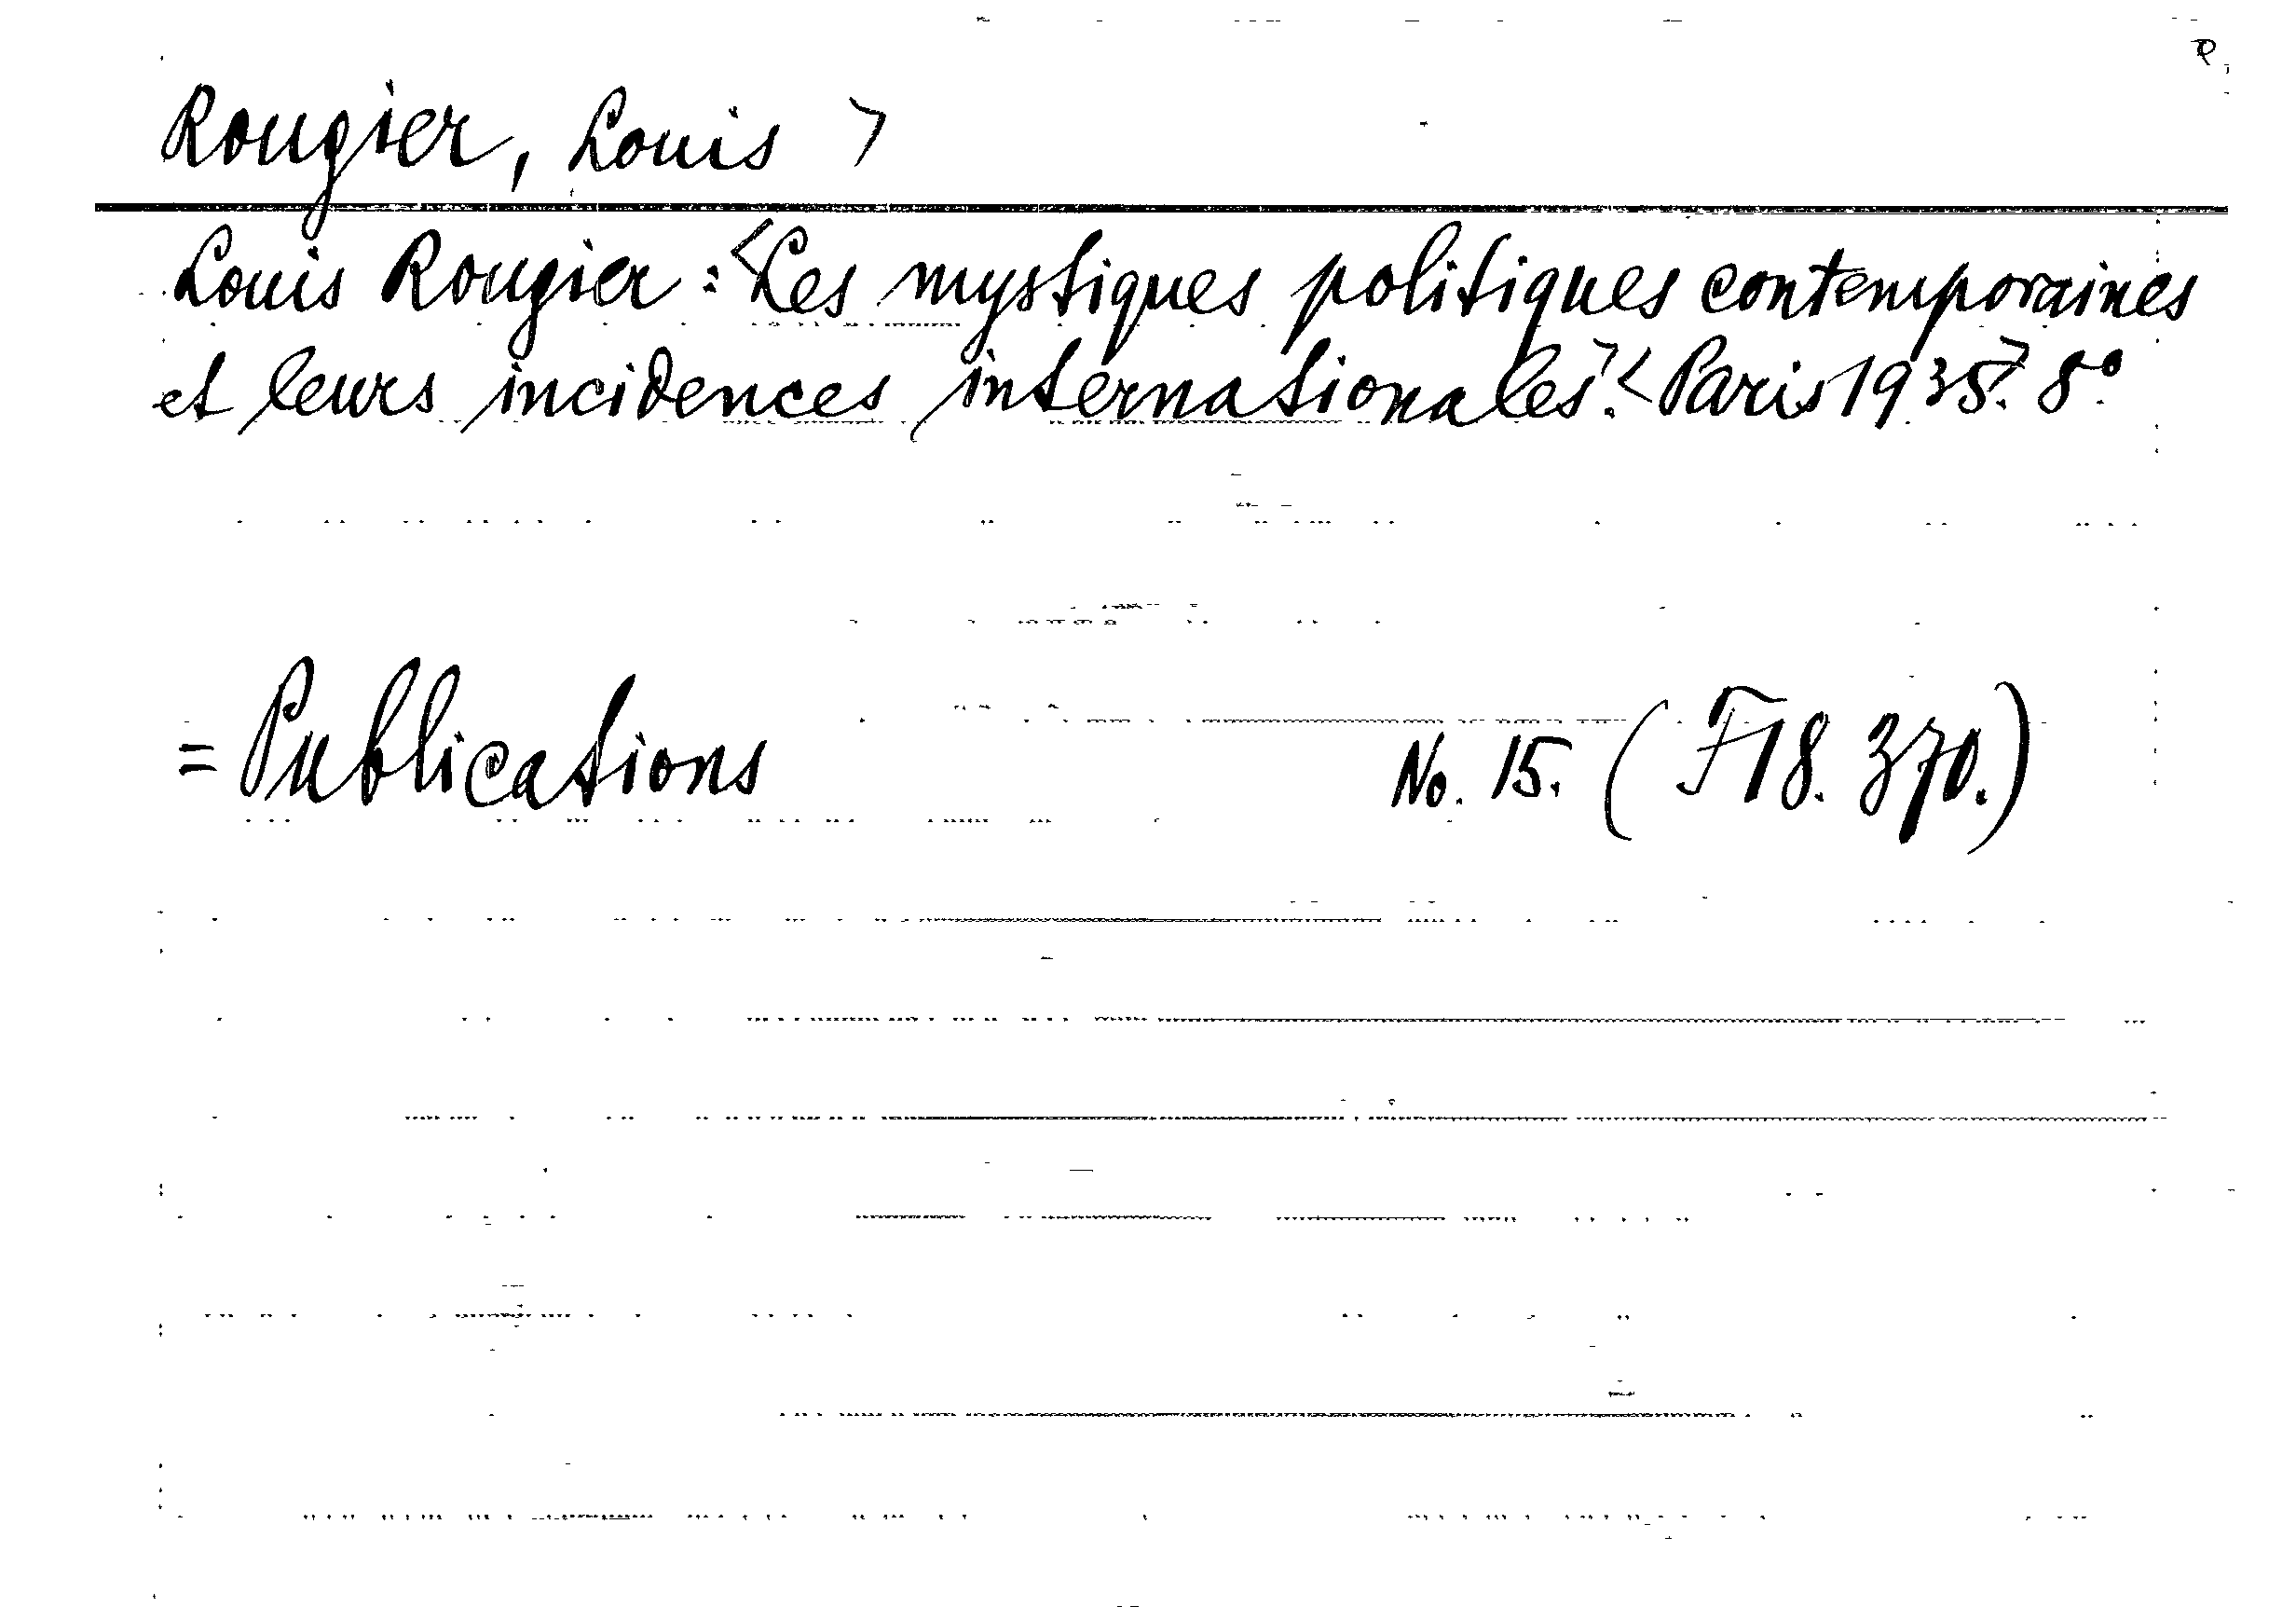 R.
Rougier, Louis >
Louis Rougier: <Les mystiques politiques contemporaines
et leurs incidences internationales>. <Paris 1935>. 8°
= Publications No. 15. (F18.370.)